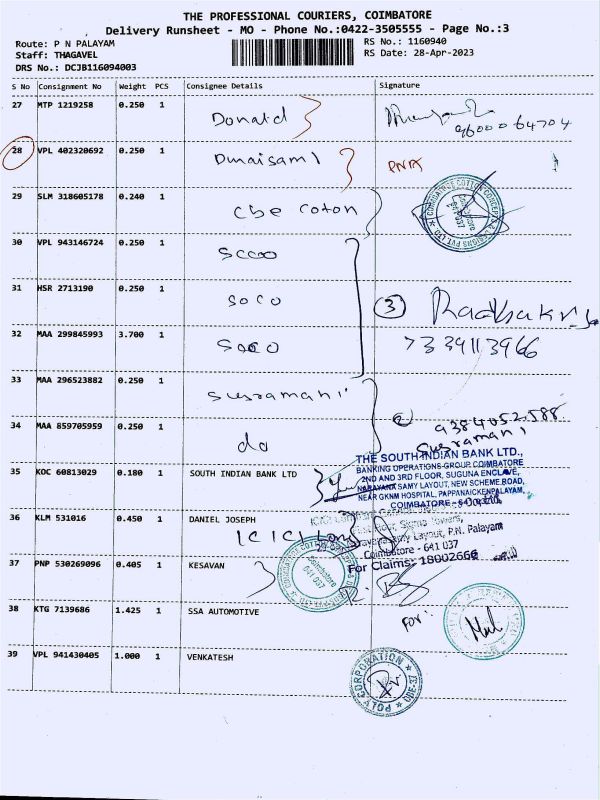 THE PROFESSIONAL COURIERS, COIMBATORE
Delivery Runsheet - MO - Phone No.:0422-3505555 - Page No.:3
Route: P N PALAYAM
RS No.: 1160940
Staff: THAGAVEL
RS Date: 28-Apr-2023
DRS No.: DCJB116094003
S No Consignment No Weight PCS Consignee Details Signature
27 MTP 1219258 0.250 1 Donald 9600064704
28 VPL 402320692 0.250 1
29 SLM 318605178 0.240 1 Cbe coton
30 VPL 943146724 0.250 1
31 HSR 2713190 0.250 1 soco
3
32 MAA 299845993 3.700 1 7339113966
33 MAA 296523882 0.250 1 Susramani
34 MAA 859705959 0.250 1 do
9384052588
Susramani
THE SOUTH INDIAN BANK LTD.,
BANKING OPERATIONS GROUP, COIMBATORE
35 KOC 60813029 0.180 1 SOUTH INDIAN BANK LTD
2ND AND 3RD FLOOR, SUGUNA ENCLAVE,
NARAYANA SAMY LAYOUT, NEW SCHEME ROAD,
NEAR GKNM HOSPITAL, PAPPANAICKENPALAYAM,
COIMBATORE
36 KLM 531016 0.450 1 DANIEL JOSEPH
ICICI
Sigma Towers,
Layout, P.N. Palayam
Coimbatore - 641 037
For Claims: 18002666
37 PNP 530269096 0.405 1 KESAVAN
38 KTG 7139686 1.425 1 SSA AUTOMOTIVE
For:
39 VPL 941430405 1.000 1 VENKATESH
POLY CORPORATION
CBE-37